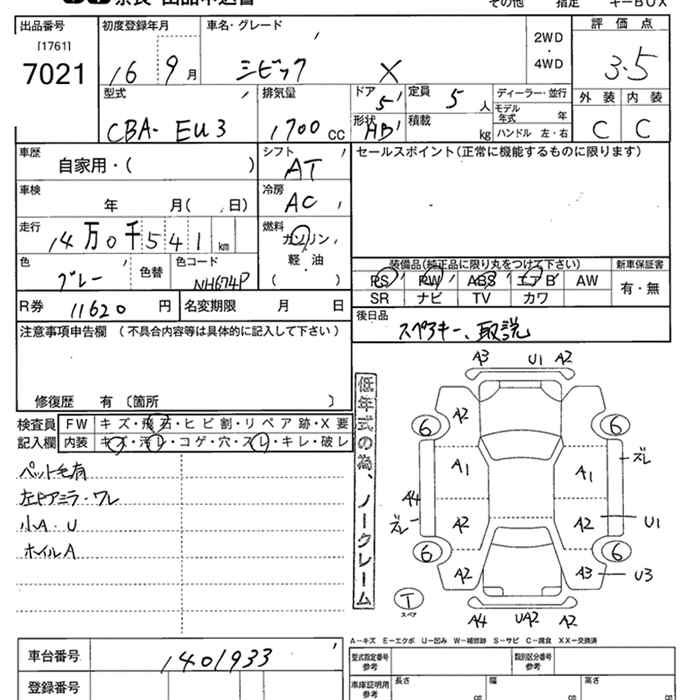 出品番号
[1761]
7021
初度登録年月
16 9 月
車名・グレード
シビック X
2WD
・
4WD
評価点
3.5
型式
CBA- EU3
排気量
1700 CC
ドア
5
定員
5 人
形状
HB
積載
kg
ディーラー・並行
モデル年式 年
ハンドル 左・右
外装 内装
C C
車歴
自家用・( )
シフト
AT
セールスポイント(正常に機能するものに限ります)
車検
年 月( 日)
冷房
AC
走行
14万0千541 km
燃料
ガソリン
軽・油
( )
色
グレー
色替
色コード
NH674P
装備品(純正品に限り丸をつけて下さい)
PS PW ABS エアB AW
SR ナビ TV カワ
新車保証書
有・無
R券 11620 円
名変期限 月 日
後日品
スペアキー、取説
注意事項申告欄 (不具合内容等は具体的に記入して下さい)
修復歴 有 〔箇所 〕
検査員
記入欄
FW キズ・飛石・ヒビ割・リペア跡・X要
内装 キズ・汚レ・コゲ・穴・スレ・キレ・破レ
ペット毛有
左ドアミラ・ワレ
小A・U
ホイルA
低年式の為、ノークレーム
A3 U1 A2
A2
6 6
A1 A1
ズレ
A4
ズレ
A2 A2 U1
6 6
A2 A3 U3
T
スペア
A4 UA2 A2
A-キズ E-エクボ U-凹み W-補修跡 S-サビ C-腐食 XX-交換済
車台番号
1401933
登録番号
型式指定番号
参考
類別区分番号
参考
車庫証明用
参考
長さ
cm
幅
cm
高さ
cm